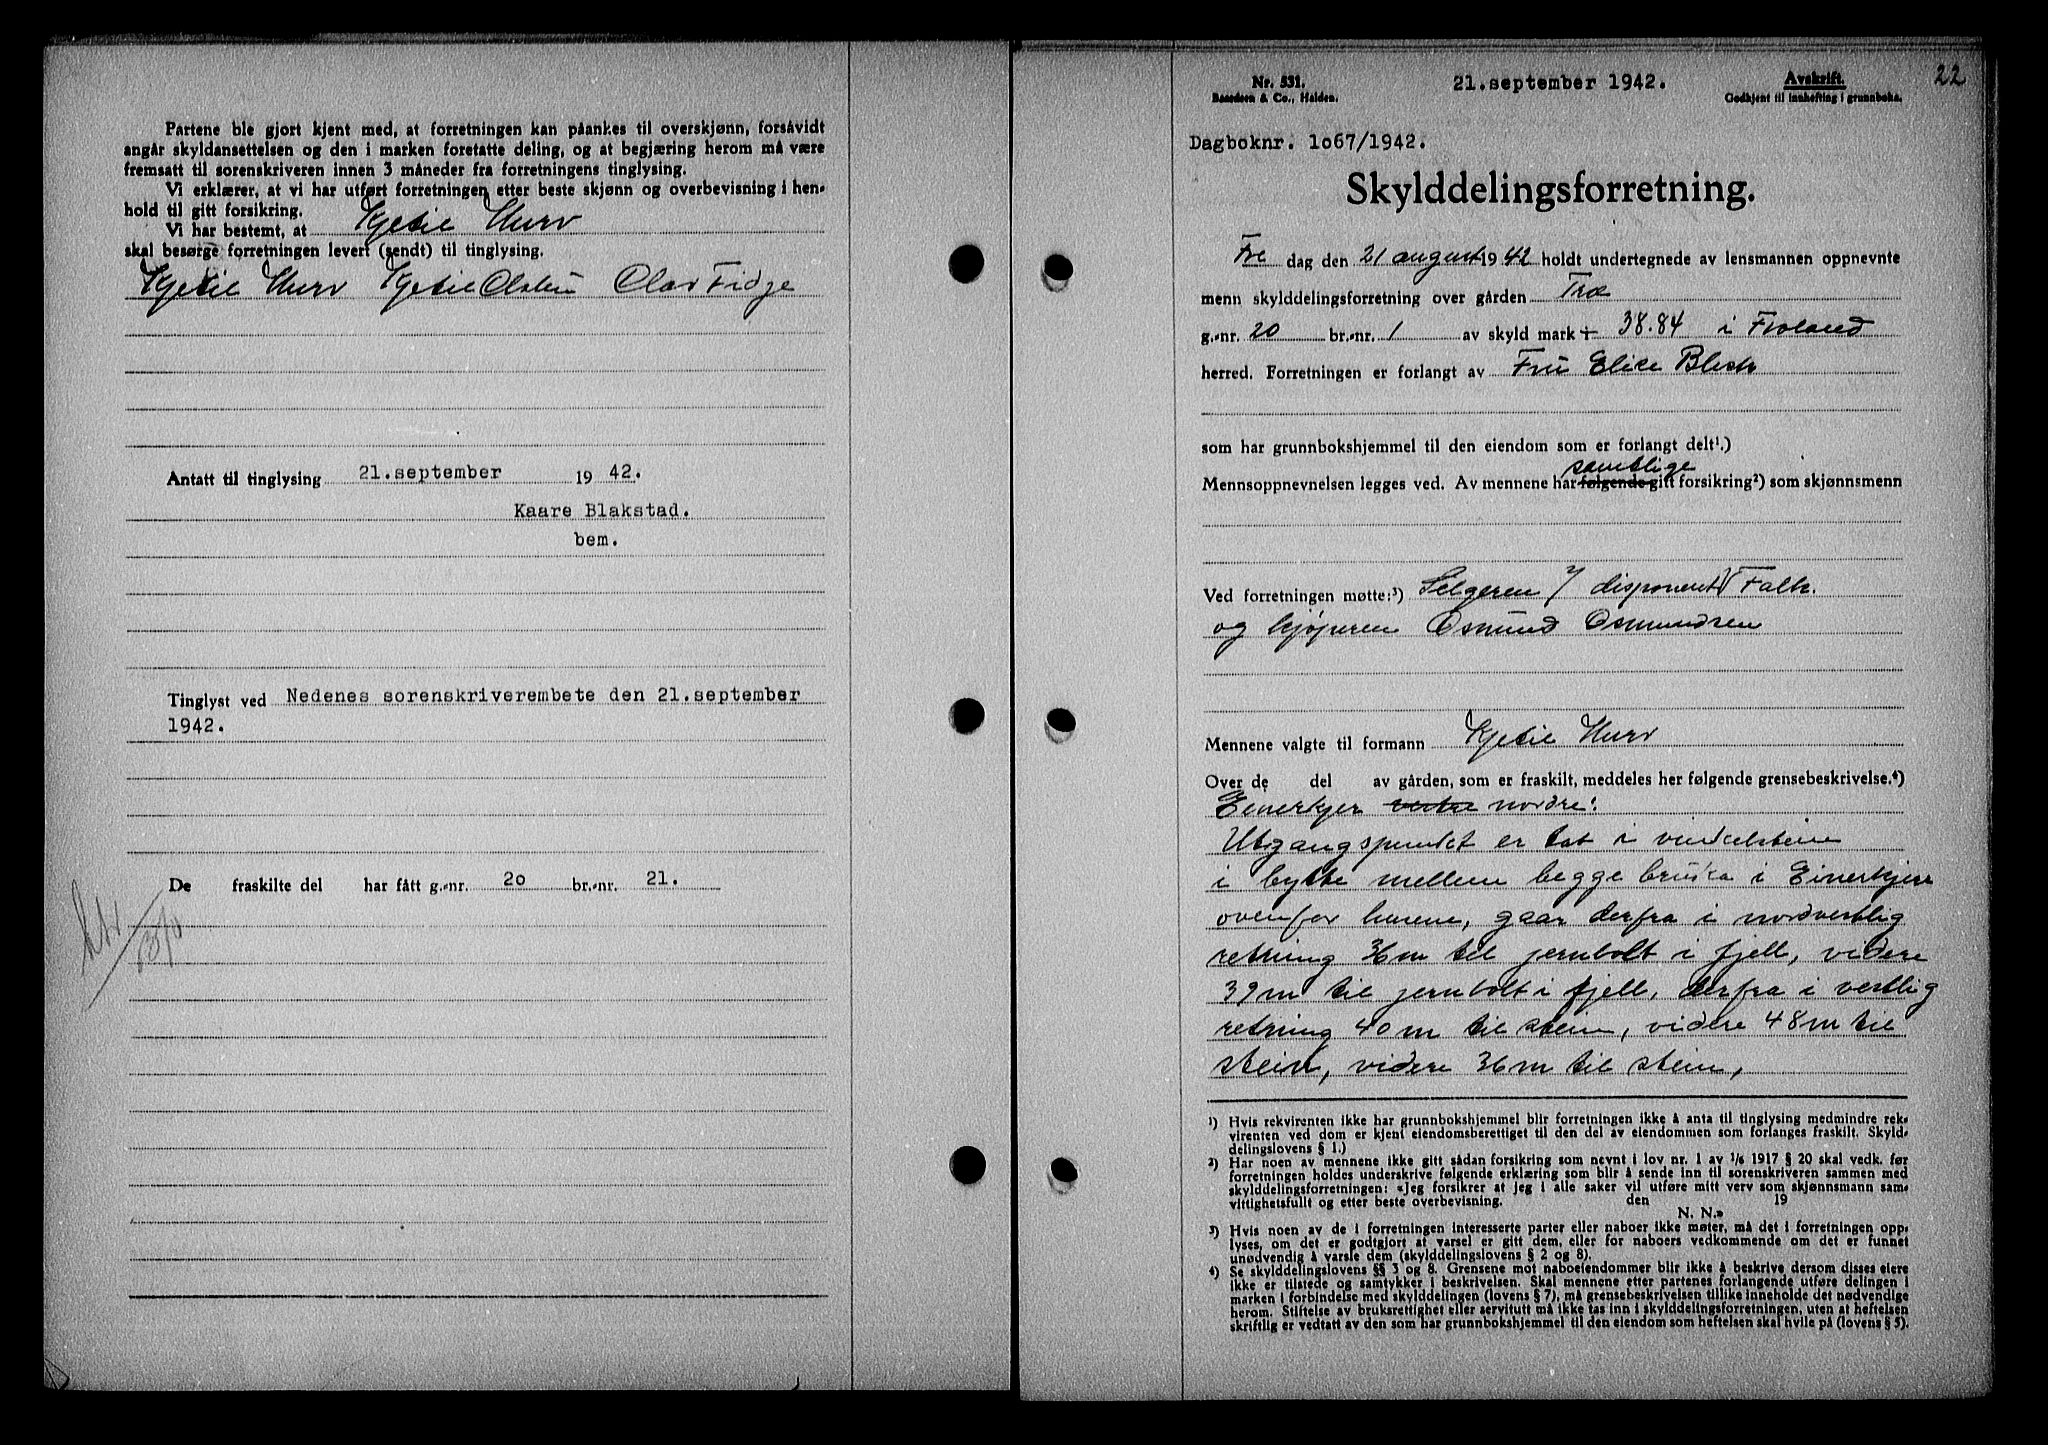 Partene ble gjort kjent med, at forretningen kan påankes til overskjønn, forsåvidt
angår skyldansettelsen og den i marken foretatte deling, og at begjæring herom må være
fremsatt til sorenskriveren innen 3 måneder fra forretningens tinglysing.
Vi erklærer, at vi har utført forretningen etter beste skjønn og overbevisning i hen-
hold til gitt forsikring.
Vi har bestemt, at Kjetil Hurv
skal besørge forretningen levert (sendt) til tinglysing.
Kjetil Hurv Kjetil Olsen Olav Fidge
Antatt til tinglysing 21.september 1942.
Kaare Blakstad.
bem.
Tinglyst ved Nedenes sorenskriverembete den 21.september
1942.
De fraskilte del har fått g.-nr. 20 br.-nr. 21.
22
Nr. 531. 21.september 1942. Avskrift.
& Co., Halden. Godkjent til innhefting i grunnboka.
Dagboknr. 1o67/1942.
Skylddelingsforretning.
Fre dag den 21 august 1942 holdt undertegnede av lensmannen oppnevnte
menn skylddelingsforretning over gården Træ
g.-nr. 20 br.-nr. 1 av skyld mark 38.84 i Froland
herred. Forretningen er forlangt av Fru Elise Blech
som har grunnbokshjemmel til den eiendom som er forlangt delt¹.)
samtlige
Mennsoppnevnelsen legges ved. Av mennene har følgende gitt forsikring²) som skjønnsmenn
Ved forretningen møtte:³) Selgeren v/ disponent Falk.
og kjøperen Osmund Osmundsen
Mennene valgte til formann Kjetil Hurv
Over de del av gården, som er fraskilt, meddeles her følgende grensebeskrivelse.⁴)
Einerkjer nordre:
Utgangspunktet er tat i vinkelstein
i bytte mellem begge bruka i Einerkjer
ovenfor husene, gaar derfra i nordvestlig
retning 36m til jernbolt i fjell, videre
39m til jernbolt i fjell, derfra i vestlig
retning 40m til stein, videre 48m til
stein, videre 36m til stein,
¹) Hvis rekvirenten ikke har grunnbokshjemmel blir forretningen ikke å anta til tinglysing medmindre rek-
virenten ved dom er kjent eiendomsberettiget til den del av eiendommen som forlanges fraskilt. Skyld-
delingslovens § 1.)
²) Har noen av mennene ikke gitt sådan forsikring som nevnt i lov nr. 1 av 1/6 1917 § 20 skal vedk. før
forretningen holdes underskrive følgende erklæring som blir å sende inn til sorenskriveren sammen med
skylddelingsforretningen: «Jeg forsikrer at jeg i alle saker vil utføre mitt verv som skjønnsmann sam-
vittighetsfullt og etter beste overbevisning. den 19
N. N.»
³) Hvis noen av de i forretningen interesserte parter eller naboer ikke møter, må det i forretningen opp-
lyses, om det er godtgjort at varsel er gitt dem, eller for naboers vedkommende om det er funnet
unødvendig å varsle dem (skylddelingslovens § 2 og 8).
⁴) Se skylddelingslovens §§ 3 og 8. Grensene mot naboeiendommer blir ikke å beskrive dersom disses eiere
ikke er tilstede og samtykker i beskrivelsen. Skal mennene etter partenes forlangende utføre delingen i
marken i forbindelse med skylddelingen (lovens § 7), må grensebeskrivelsen tillike inneholde det nødvendige
herom. Stiftelse av bruksrettighet eller servitutt må ikke tas inn i skylddelingsforretningen, uten at heftelsen
skriftlig er vedtatt av den som har grunnbokshjemmel til den eiendom som heftelsen skal hvile på (lovens § 5).